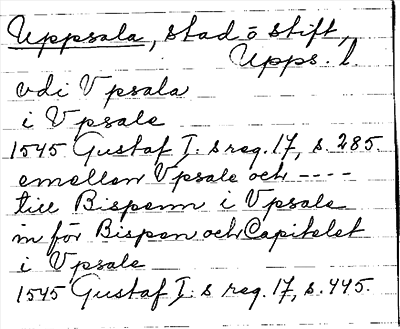 Uppsala, stad o stift,
Upps. l.
vdi Vpsala
i Vpsale
1545 Gustaf I:s reg. 17, s. 285.
emellan Vpsale och ----
till Bispenn i Vpsale
in för Bispen och Capitelet
i Vpsale
1545 Gustaf I:s reg. 17, s. 445.